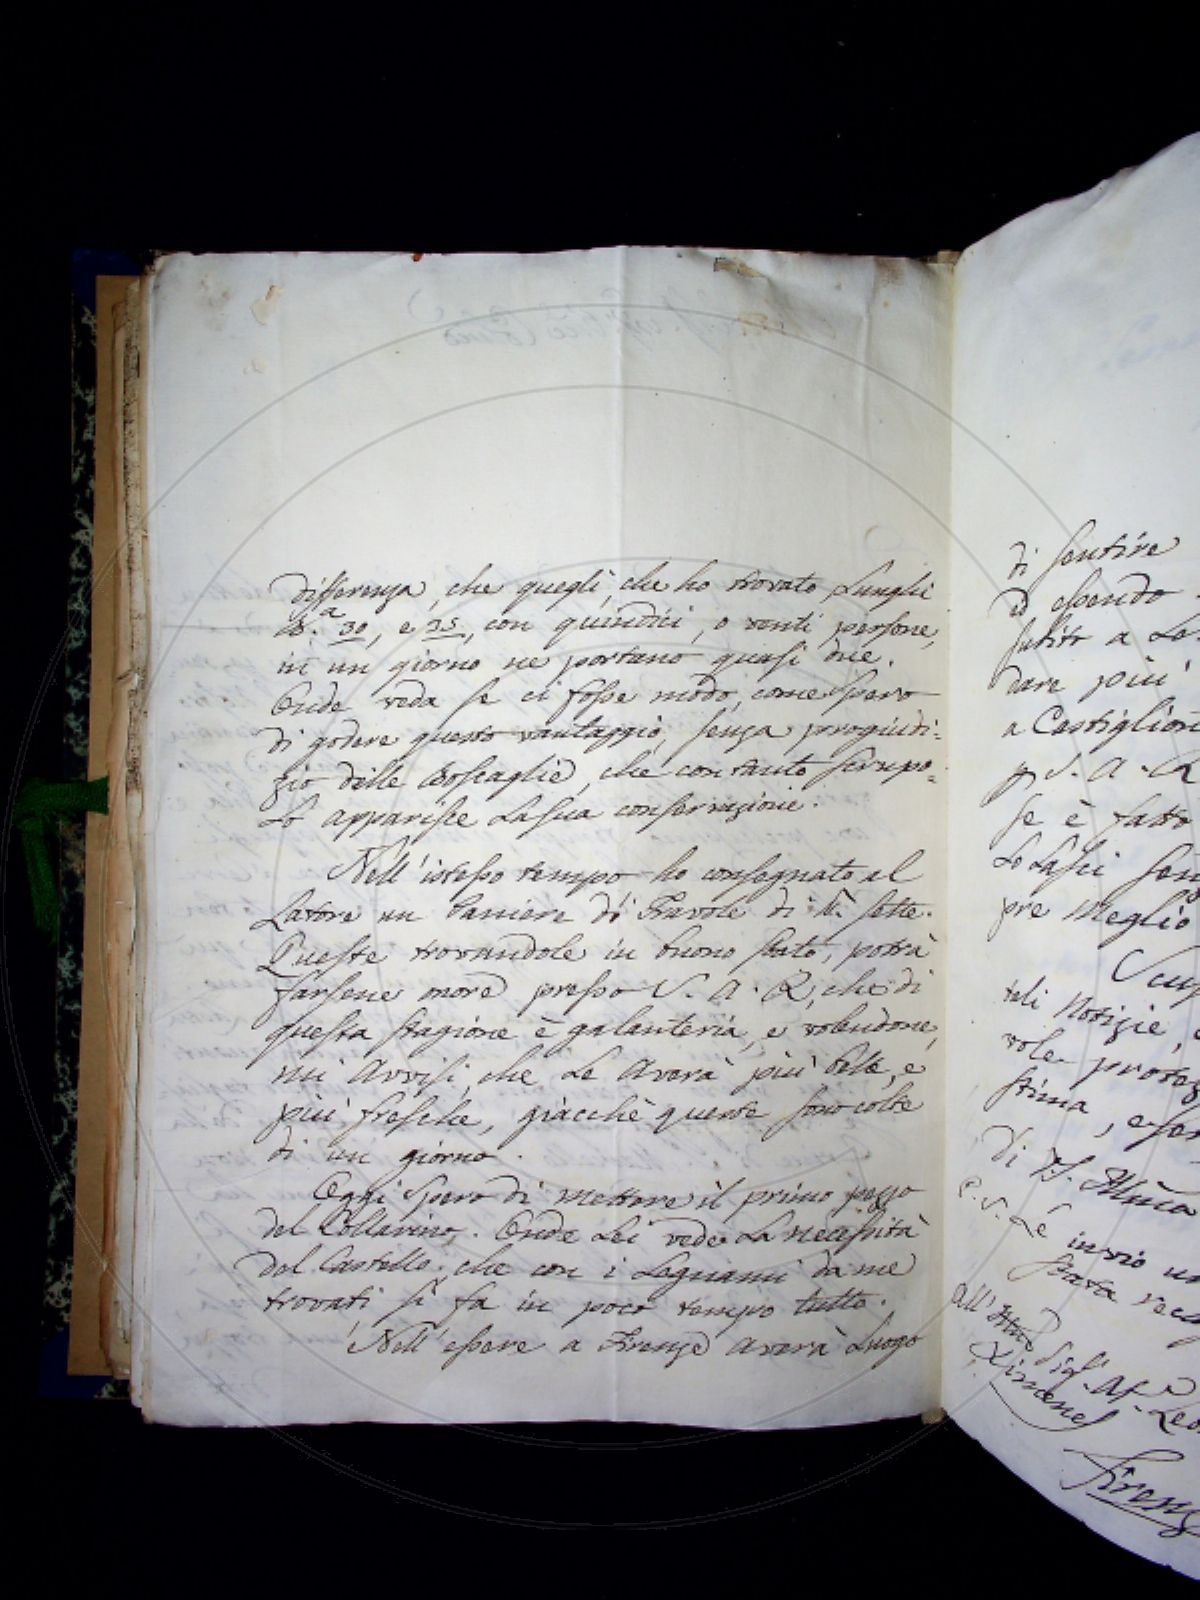 differenza, che quegli, che ho trovato Lunghi
B.a 30, e 25, con quindici, o venti persone,
in un giorno ne portano quasi due.
Onde veda se ci fosse modo, come spero
di godere questo vantaggio, senza progiudi=
zio delle Boscaglie, che con tanto scrupo=
lo apparisce la sua conservazione.
Nell'istesso tempo ho consegnato al
Latore un Paniere di Fravole di lb. sette.
Queste trovandole in buono stato, potrà
farsene onore presso S. A. R., che di
questa stagione è galanteria, e volendone,
mi Avvisi, che Le Averà più belle, e
più fresche, giacchè queste sono colte
di un giorno.
Oggi spero di mettere il primo pezzo
del Collarino. Onde Lei vede La necessità
del Castello, che con i Legnami da me
trovati si fa in poco tempo tutto.
Nell'essere a Firenze Averà Luogo
di sentire
ed essendo
subito a
dare più
a Castiglion
p S. A. R
se è fatto
Lo Lasci
pre Meglio
tali Notizie,
vole proteg
stima, e
di V. S. Illma
P. S. Le invio un
stata
All' Illmo Sigr
Ximenes
Firenz